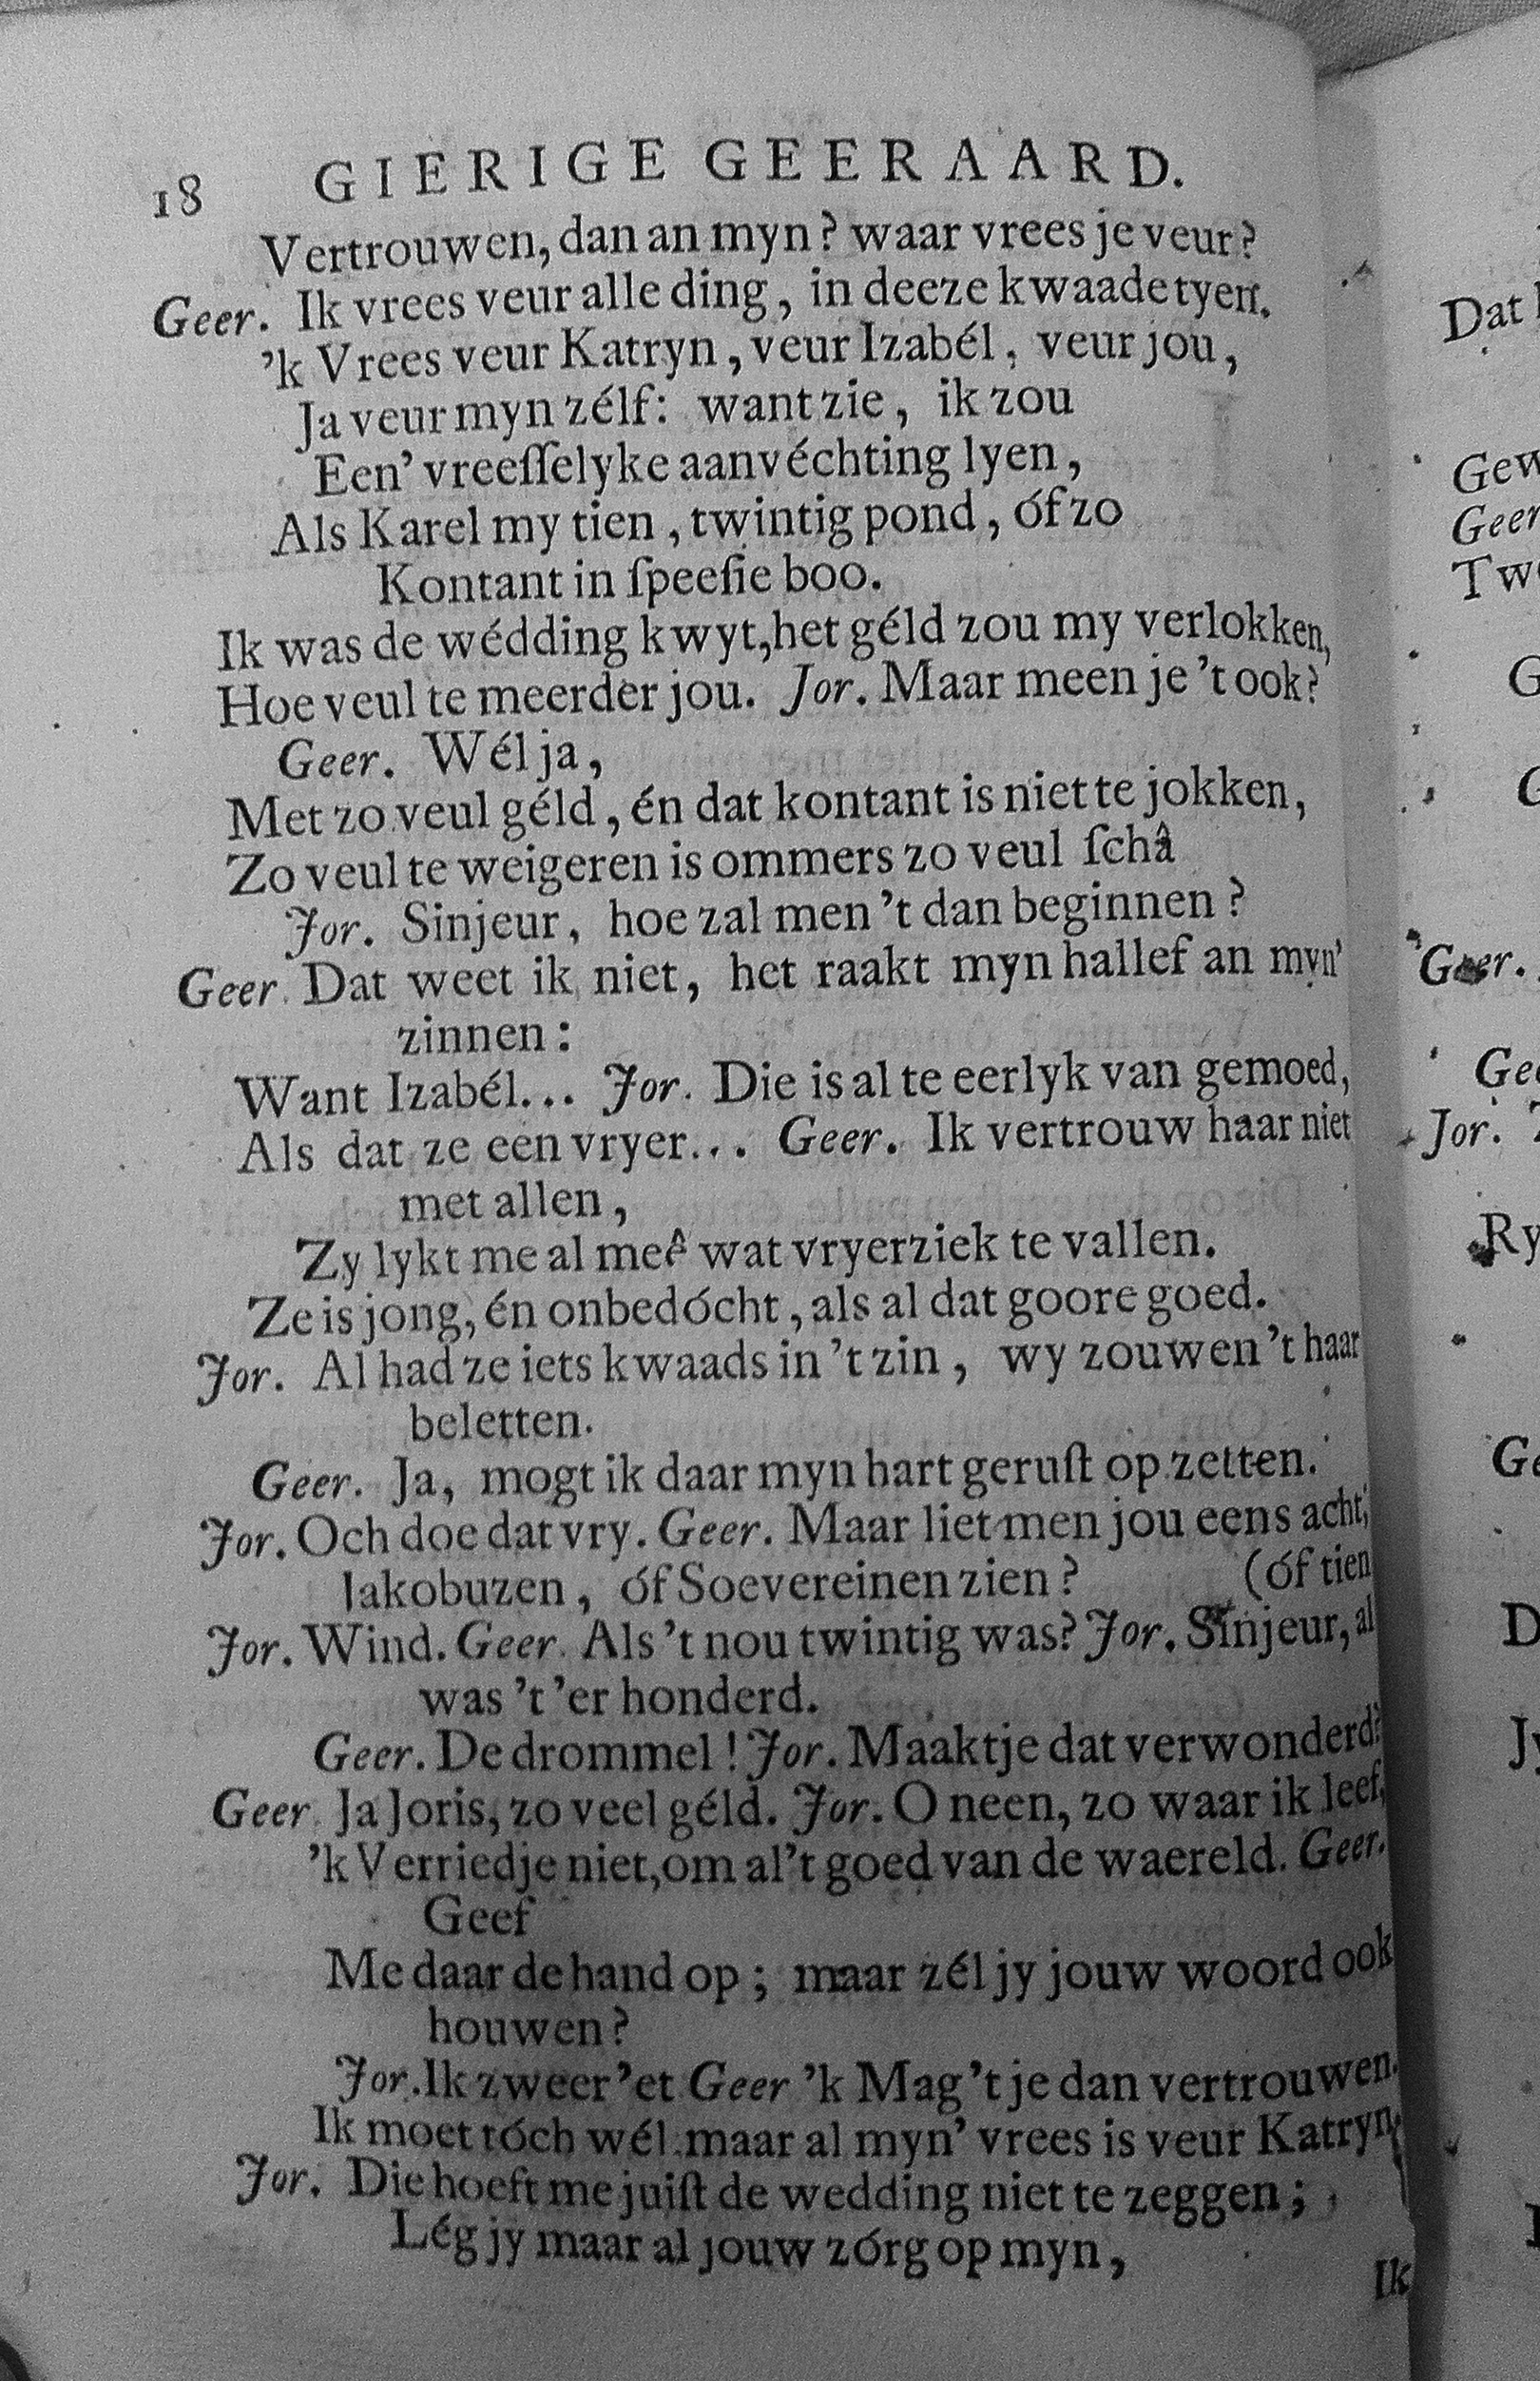 18 GIERIGE GEERAARD.
Vertrouwen, dan an myn? waar vrees je veur?
Geer. Ik vrees veur alle ding, in deeze kwaade tyen.
'k Vrees veur Katryn, veur Izabél, veur jou,
Ja veur myn zélf: want zie, ik zou
Een' vreeſſelyke aanvéchting lyen,
Als Karel my tien, twintig pond, óf zo
Kontant in ſpeeſie boo.
Ik was de wédding kwyt, het géld zou my verlokken,
Hoe veul te meerder jou. Jor. Maar meen je 't ook?
Geer. Wél ja,
Met zo veul géld, én dat kontant is niet te jokken,
Zo veul te weigeren is ommers zo veul ſchâ
Jor. Sinjeur, hoe zal men 't dan beginnen?
Geer. Dat weet ik niet, het raakt myn hallef an myn'
zinnen:
Want Izabél... Jor. Die is al te eerlyk van gemoed,
Als dat ze een vryer... Geer. Ik vertrouw haar niet
met allen,
Zy lykt me al meê wat vryerziek te vallen.
Ze is jong, én onbedócht, als al dat goore goed.
Jor. Al had ze iets kwaads in 't zin, wy zouwen 't haar
beletten.
Geer. Ja, mogt ik daar myn hart geruſt op zetten.
Jor. Och doe dat vry. Geer. Maar liet men jou eens acht,
(óf tien
Jakobuzen, óf Soevereinen zien?
Jor. Wind. Geer. Als 't nou twintig was? Jor. Sinjeur, al
was 't 'er honderd.
Geer. De drommel! Jor. Maakt je dat verwonderd?
Geer. Ja Joris, zo veel géld. Jor. O neen, zo waar ik leef,
'k Verried je niet, om al 't goed van de waereld. Geer.
Geef
Me daar de hand op; maar zél jy jouw woord ook
houwen?
Jor. Ik zweer 'et Geer 'k Mag 't je dan vertrouwen.
Ik moet tóch wél. maar al myn' vrees is veur Katryn.
Jor. Die hoeft me juiſt de wedding niet te zeggen;
Lég jy maar al jouw zórg op myn,
Ik
Dat
Geer
Geer.
Jor.